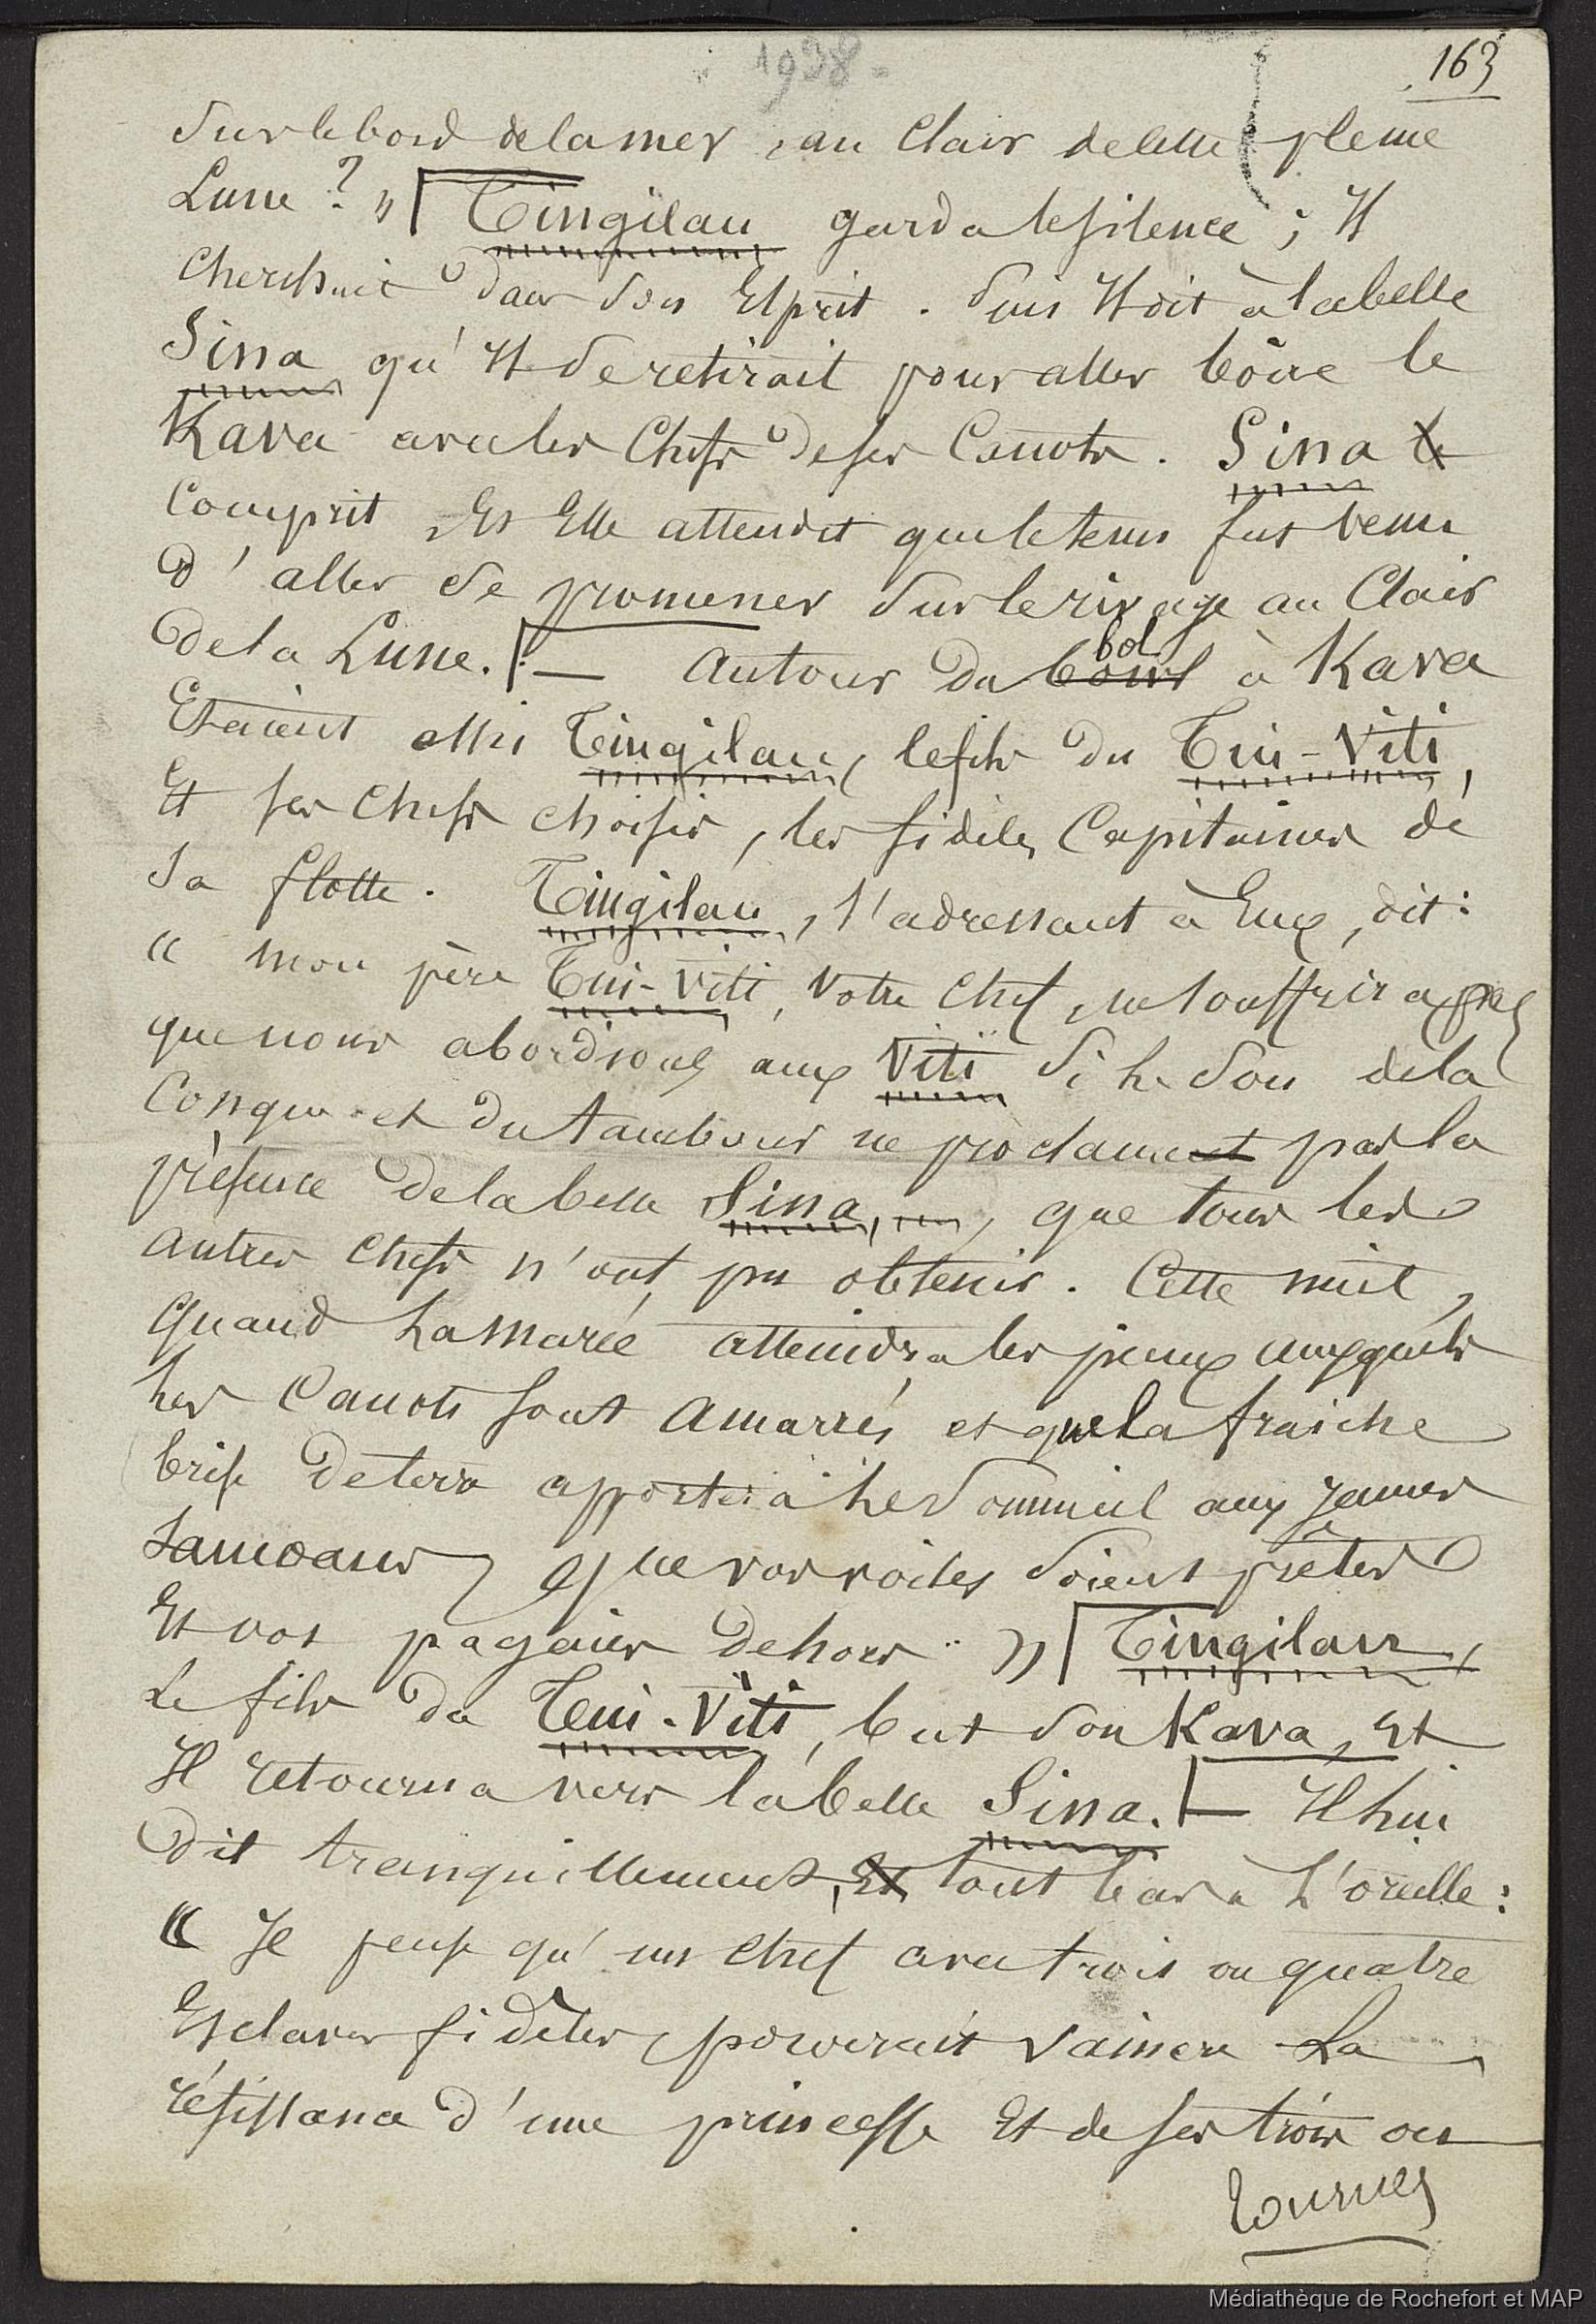 1938 -
163
Sur le bord de la mer, au Clair de cette pleine
Lune ? " Tingilau garda le silence ; Il
Cherchait dans son Esprit. Puis Il dit à la belle
Sina qu'Il se retirait pour aller boire le
Kava avec les Chefs de ses Canots. Sina le
Comprit, Et Elle attendit que le tems fut venu
d'aller se promener sur le rivage au Clair
de la Lune. — Autour du bowl bol à Kava
Etaient assis Tingilau, le fils du Tui-Viti,
Et ses Chefs choisis, les fidèles Capitaines de
Sa flotte. Tingilau, s'adressant à Eux, dit :
" mon père Tui-Viti, votre Chef, ne souffrira pas
que nous abordions aux Viti si le son de la
Conque et du tambour ne proclament pas la
présence de la belle Sina, que tous les
autres Chefs n'ont pu obtenir. Cette nuit,
Quand La marée atteindra les pieux auxquels
les Canots sont amarrés et que la fraiche
brise de terre apportera le sommeil aux jeunes
Samoans, que vos voiles soient prêtes
Et vos pagaies dehors. " Tingilau,
Le fils du Tui-Viti, but son Kava, Et
Il retourna vers la belle Sina. — Il lui
dit tranquillement, Et tout bas à L'oreille :
" Je pense qu'un Chef avec trois ou quatre
Esclaves fidèles, pourrait vaincre La
résistance d'une princesse Et de ses trois ou
Tournez
Médiathèque de Rochefort et MAP